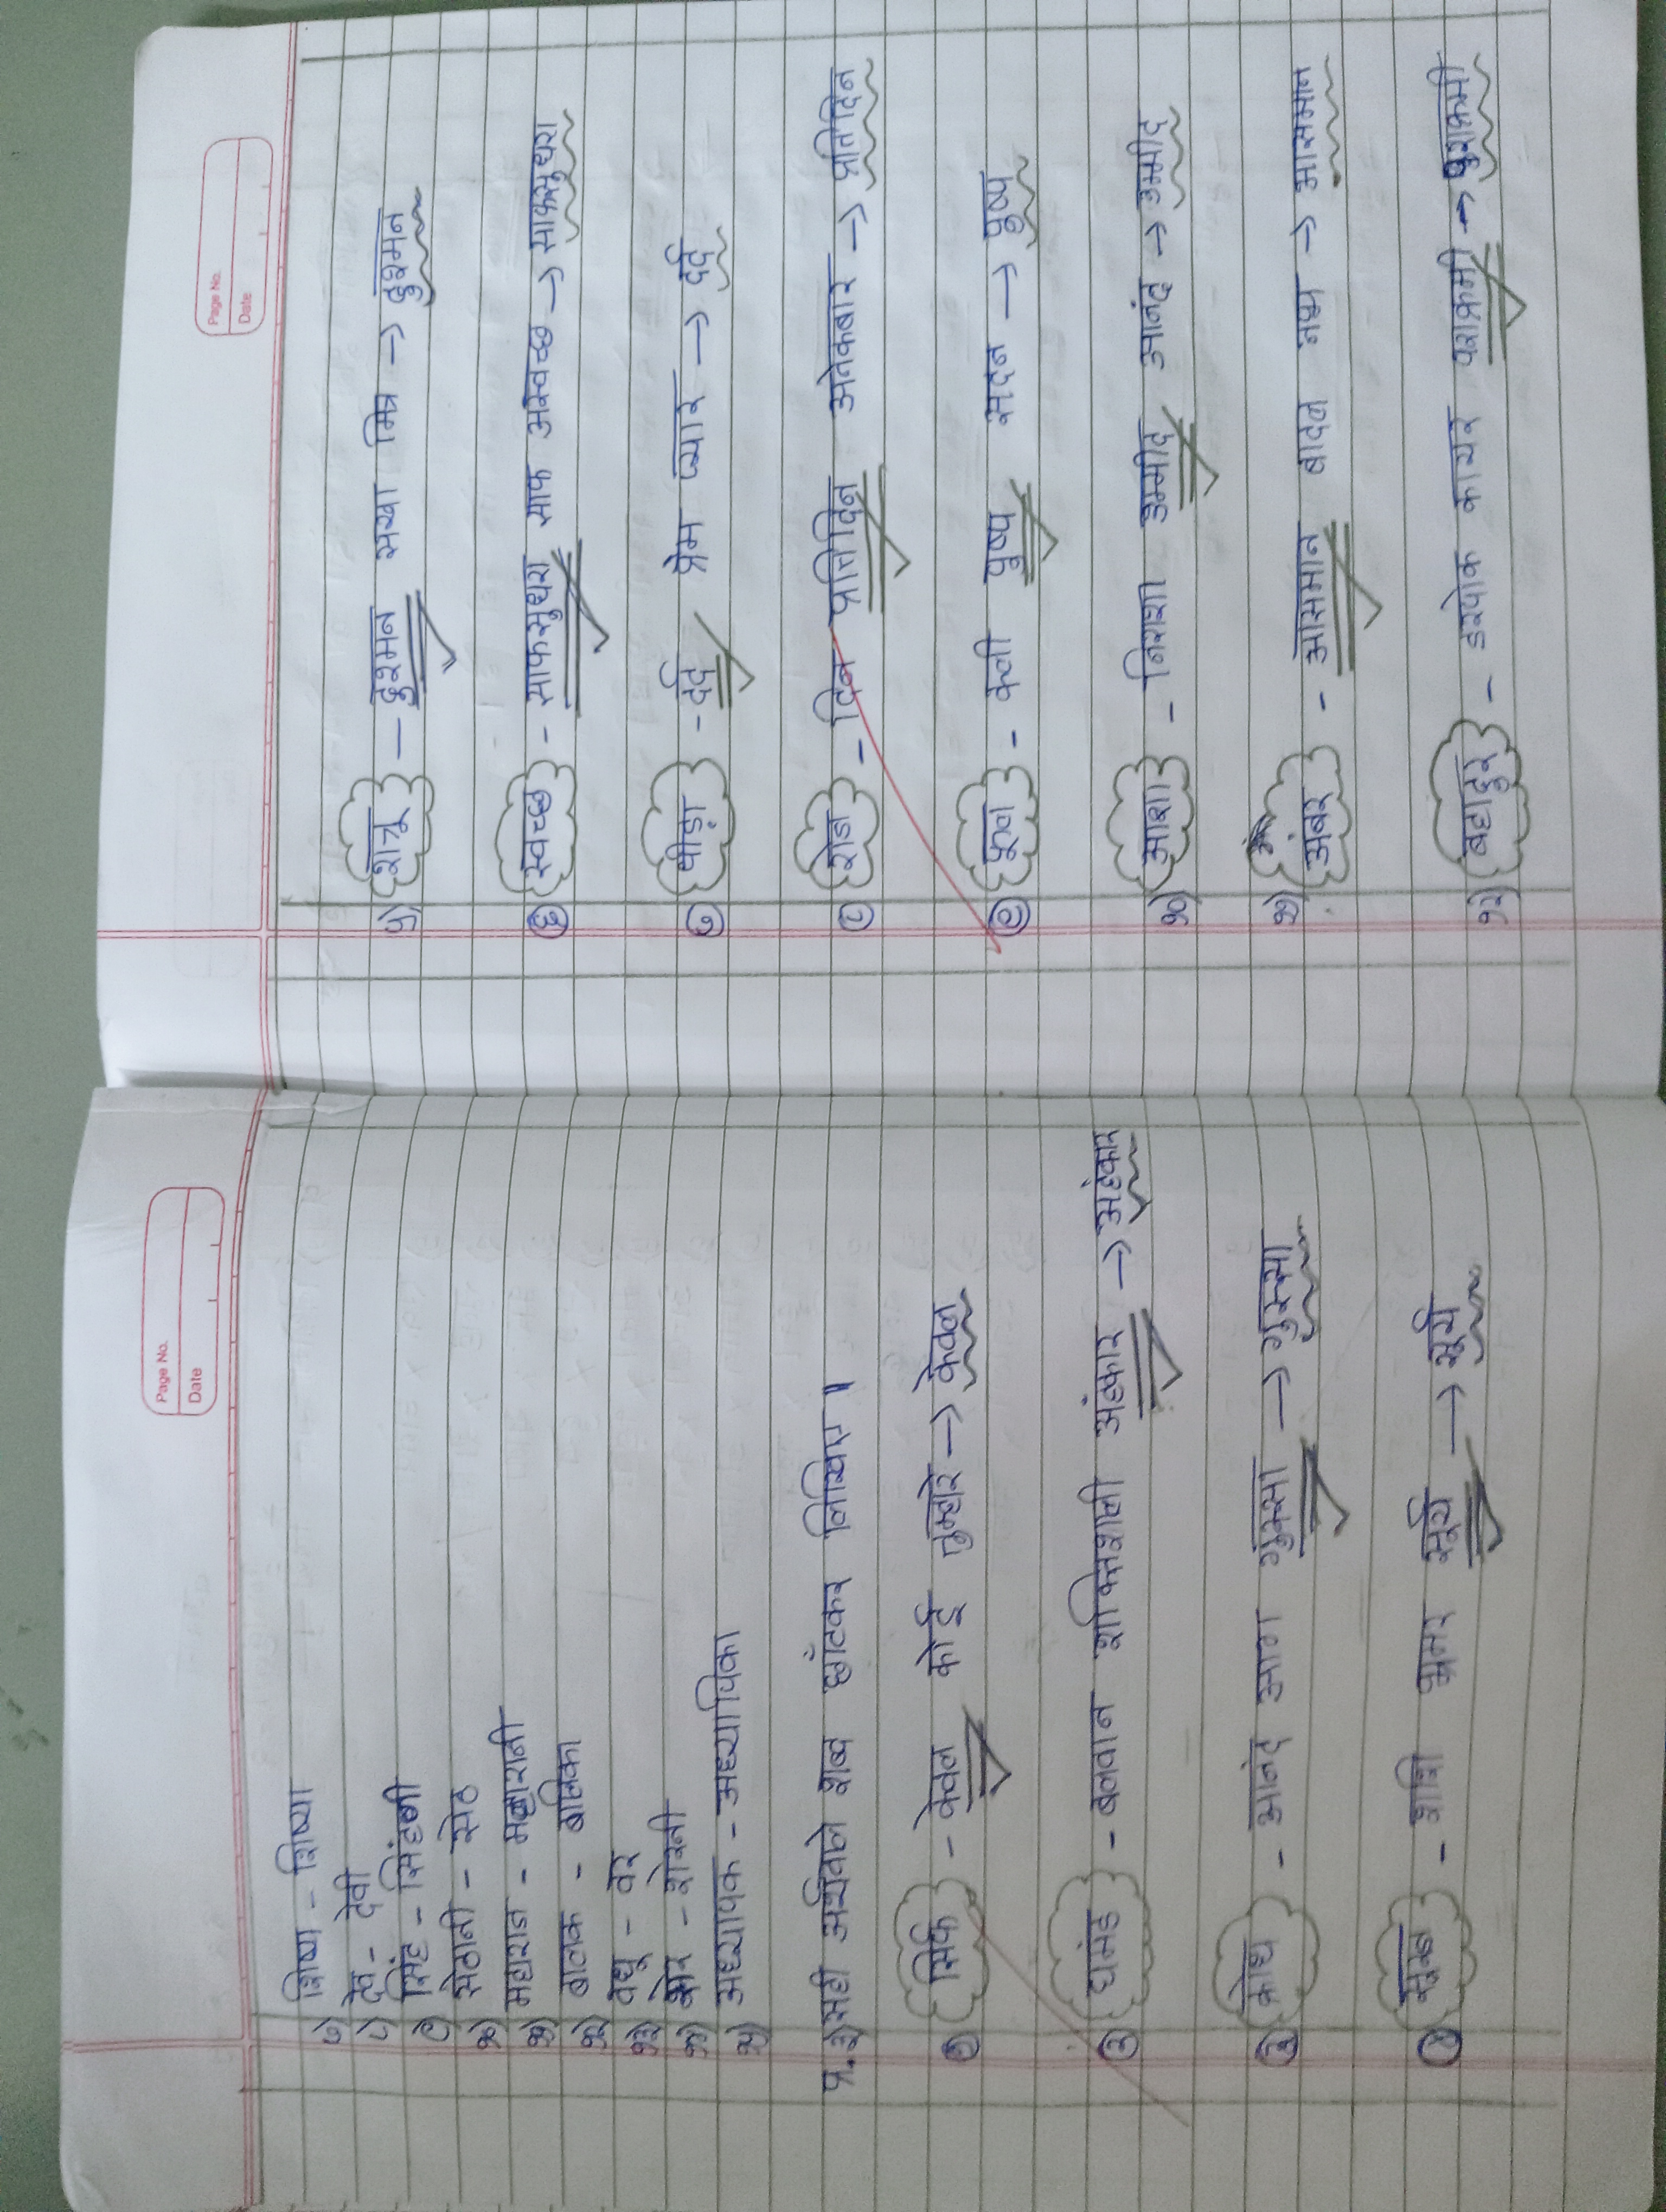 Page No.
Date
७) शिष्य - शिष्या
८) देव - देवी
९) सिंह - सिंहनी
१०) सेठानी - सेठ
११) महाराज - महारानी
१२) बालक - बालिका
१३) वधू - वर
१४) शेर - शेरनी
१५) अध्यापक - अध्यापिका
प्र.३) सही अर्थवाले शब्द छाँटकर लिखिए।
१) सिर्फ - केवल कोई तुम्हारे → केवल
२) घमंड - बलवान शक्तिशाली अंहकार → अहंकार
३) क्रोध - आनंद आग गुस्सा → गुस्सा
४) सुरज - शशि भ्रमर सूर्य → सूर्य
Page No.
Date
५) शत्रू - दुश्मन सखा मित्र → दुश्मन
६) स्वच्छ - साफसुथरा साफ अस्वच्छ → साफसुथरा
७) पीड़ा - दर्द प्रेम प्यार → दर्द
८) रोज - दिन प्रतिदिन अनेकबार → प्रतिदिन
९) फूल - कली पुष्प सदन → पुष्प
१०) आशा - निराशा उम्मीद आनंद → उम्मीद
११) अंबर - आसमान बादल नभ → आसमान
१२) बहादुर - डरपोक कायर पराक्रमी → पराक्रमी